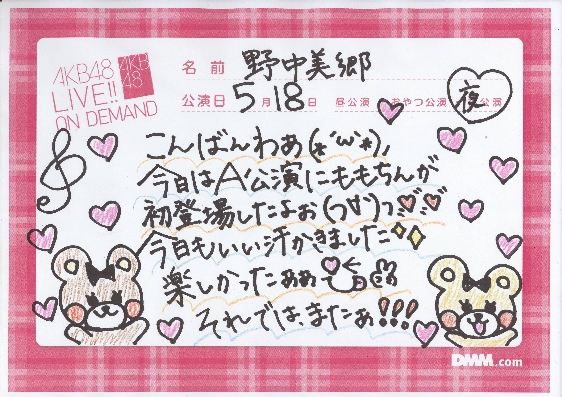 AKB48
LIVE!!
ON DEMAND
AKB
48
名前 野中美郷
公演日 5月18日 昼公演 おやつ公演 夜公演
こんばんわぁ(*´ω`*)ノ
今日はA公演にももちんが
初登場したよぉ(つ∀`)っ
今日もいい汗かきました
楽しかったぁぁ
それでは、またぁ!!!
DMM.com